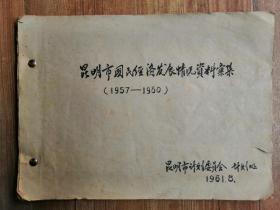 昆明市国民经济发展情况資料彙集
(1957—1960)
昆明市计划委员会
1961.8.